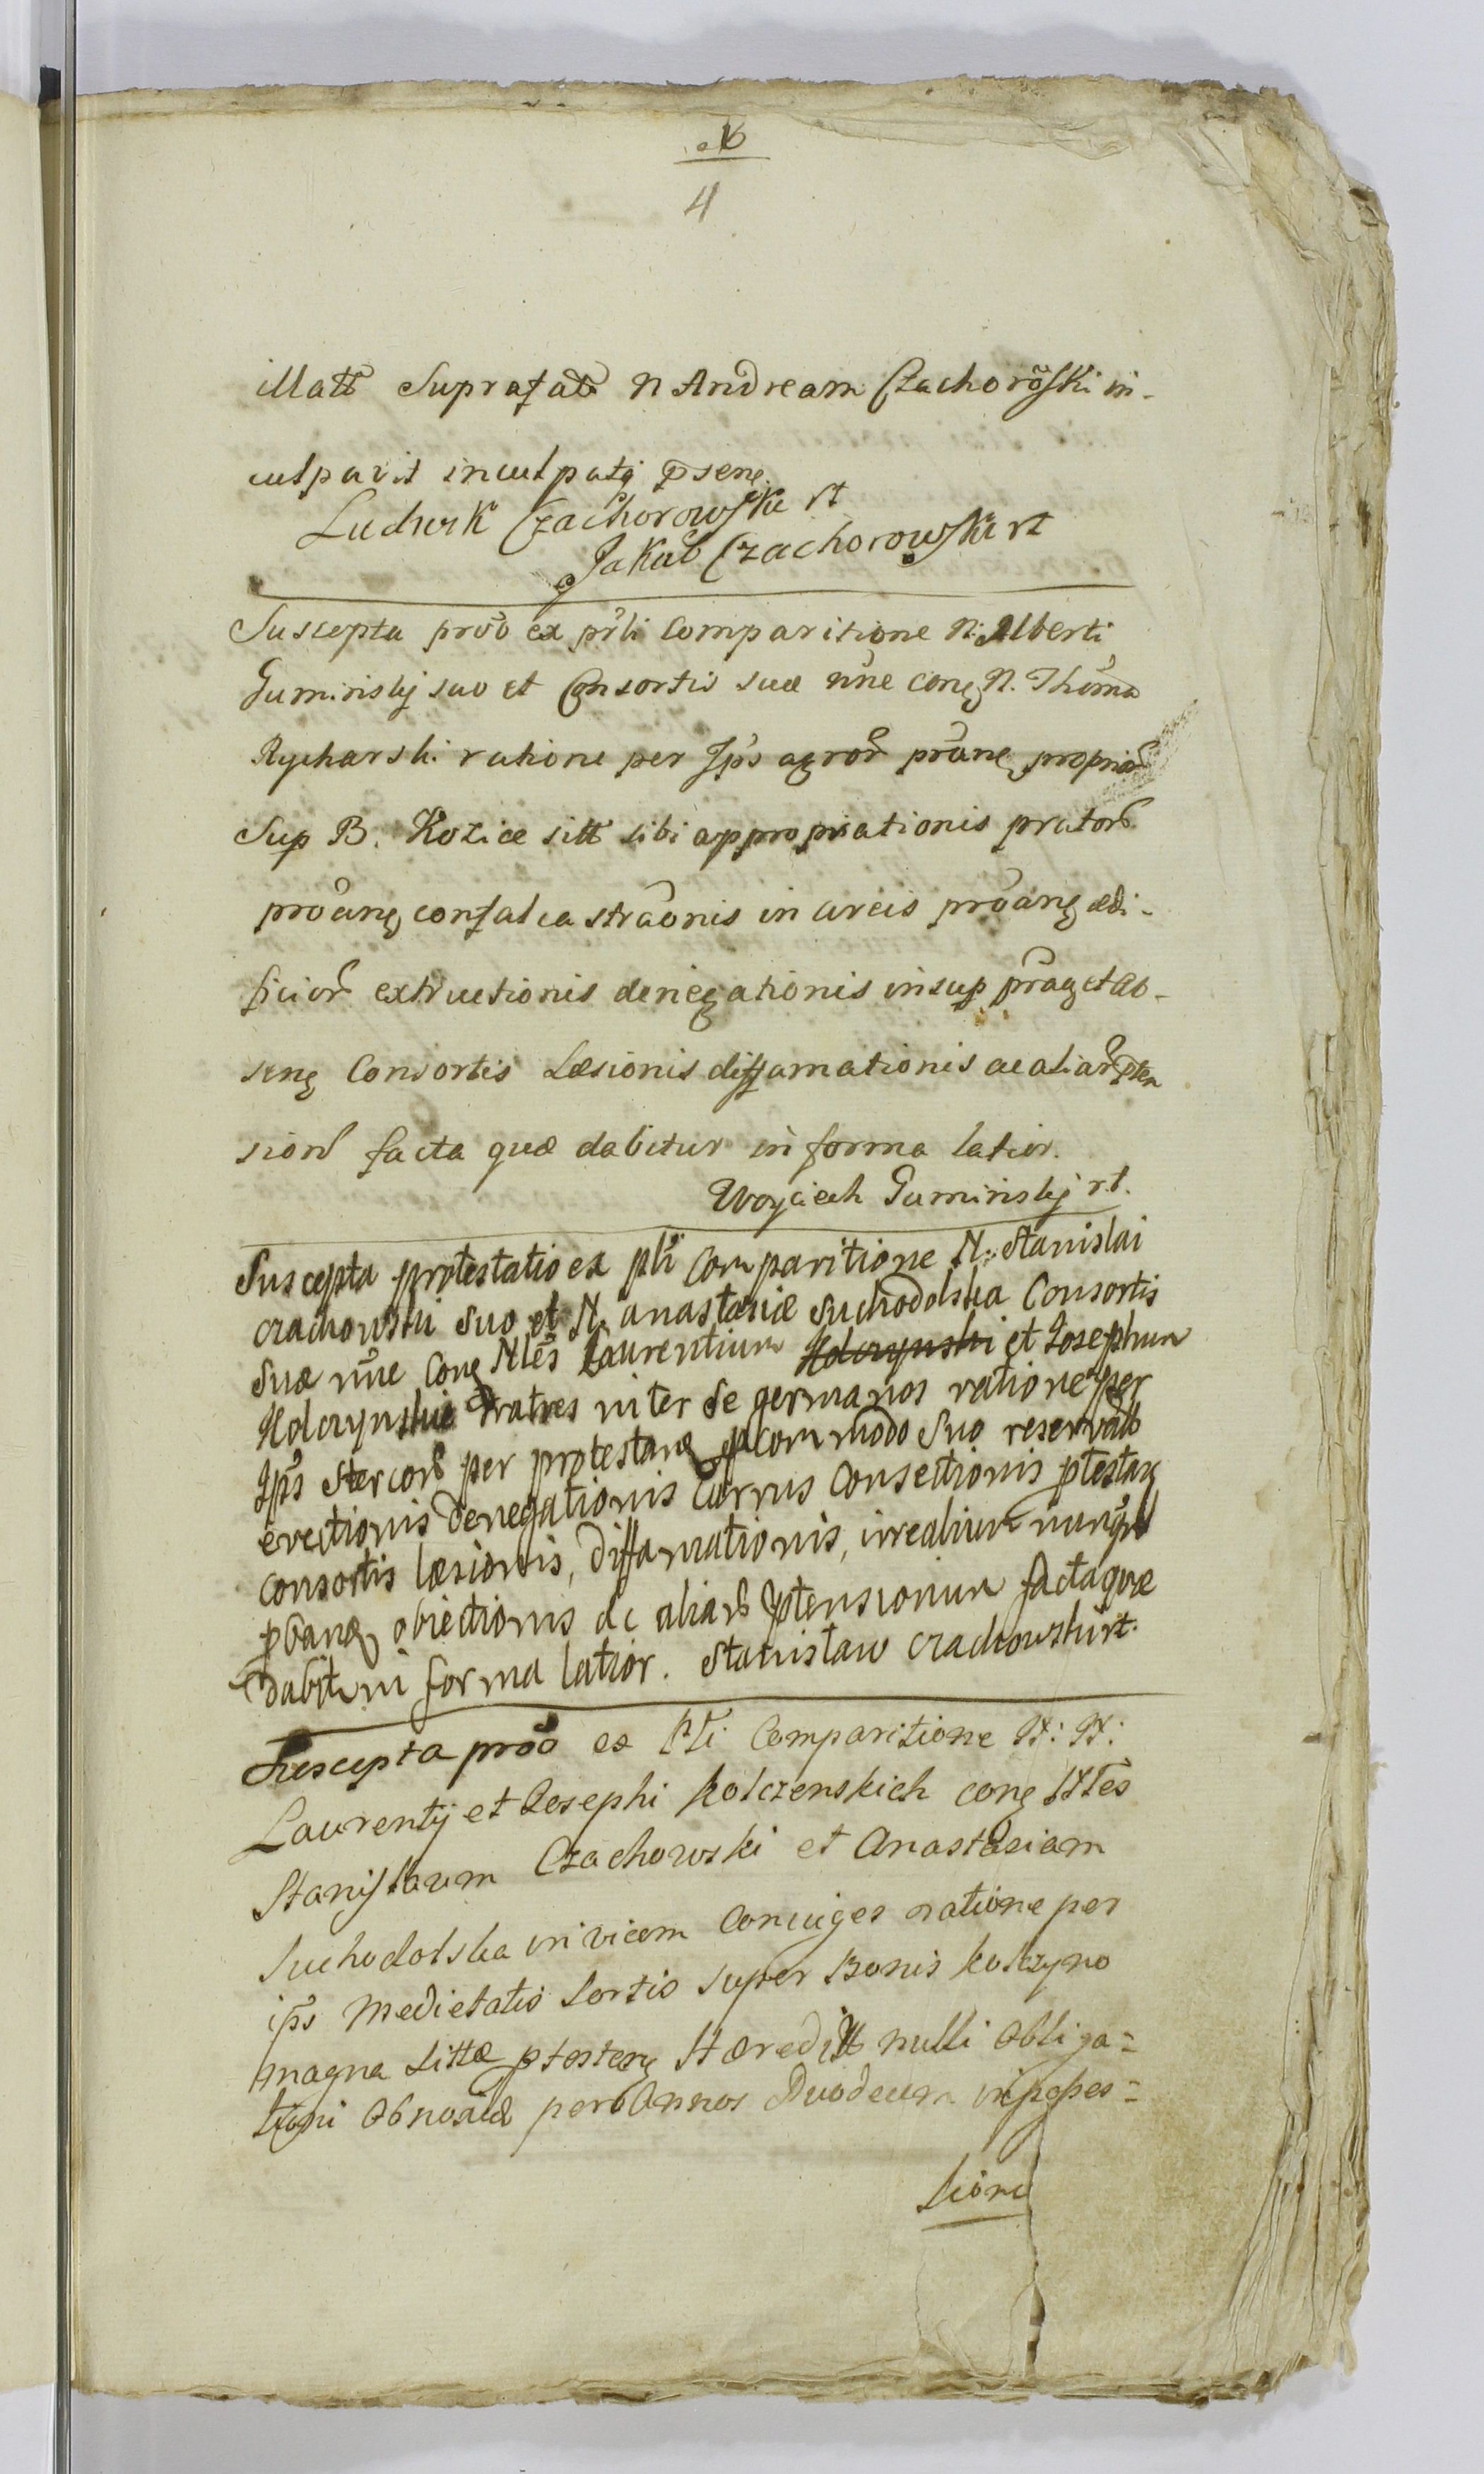 4
illatt Suprafatt N Andream Czachorõski in-
culpavit inculpatq psenq
Ludwik Czachorowski rt
Jakub Czachorowski rt
Suscepta prõo ex prli Comparitione N: Alberti
Guminskij suo et Consortis suæ nñe conq N. Thoma
Rycharski ratione per Jps agror prãnq propriar
Sup B. Kozice sitt sibi appropriationis prator
prõanq confalcastrãonis in areis prõanq ædi-
ficior extructionis denegationis insup prãq et ab-
senq Consortis Læsionis diffamationis ac aliar pten
sion facta quæ dabitur in forma latior.
Woyciech Guminskij r.t.
Suscepta protestatio ex pli Comparitione N. Stanislai
Czachowski Suo et N. anastasiæ Suchodolska Consortis
Suæ nñe Conq Nles Laurentium et Josephum
Fratres inter Se germanos ratione per
Jps Stercor per protestanq p commodo Suo reservator
evectionis Denegationis Currus Consectionis ptestanq
Consortis læsionis, Diffamationis, irrealium nunq
pbanq obiectionis ac aliar ptensionum facta quæ
Dabit in forma latior. Stanisław Czachowski rt.
Suscepta prõo ex Pli Comparitione N: N:
Laurentij et Josephi Kolczenskich conq Nles
Stanisłaum Czachowski et Anastasiam
Suchodolska invicem Coniuges ratione per
ips Medietatis Sortis super Bonis Kolczyno
magna Sittæ ptestanq Hæreditt nulli Obliga=
tioni Obnoxiæ per Annos Duodecim in posses=
sione